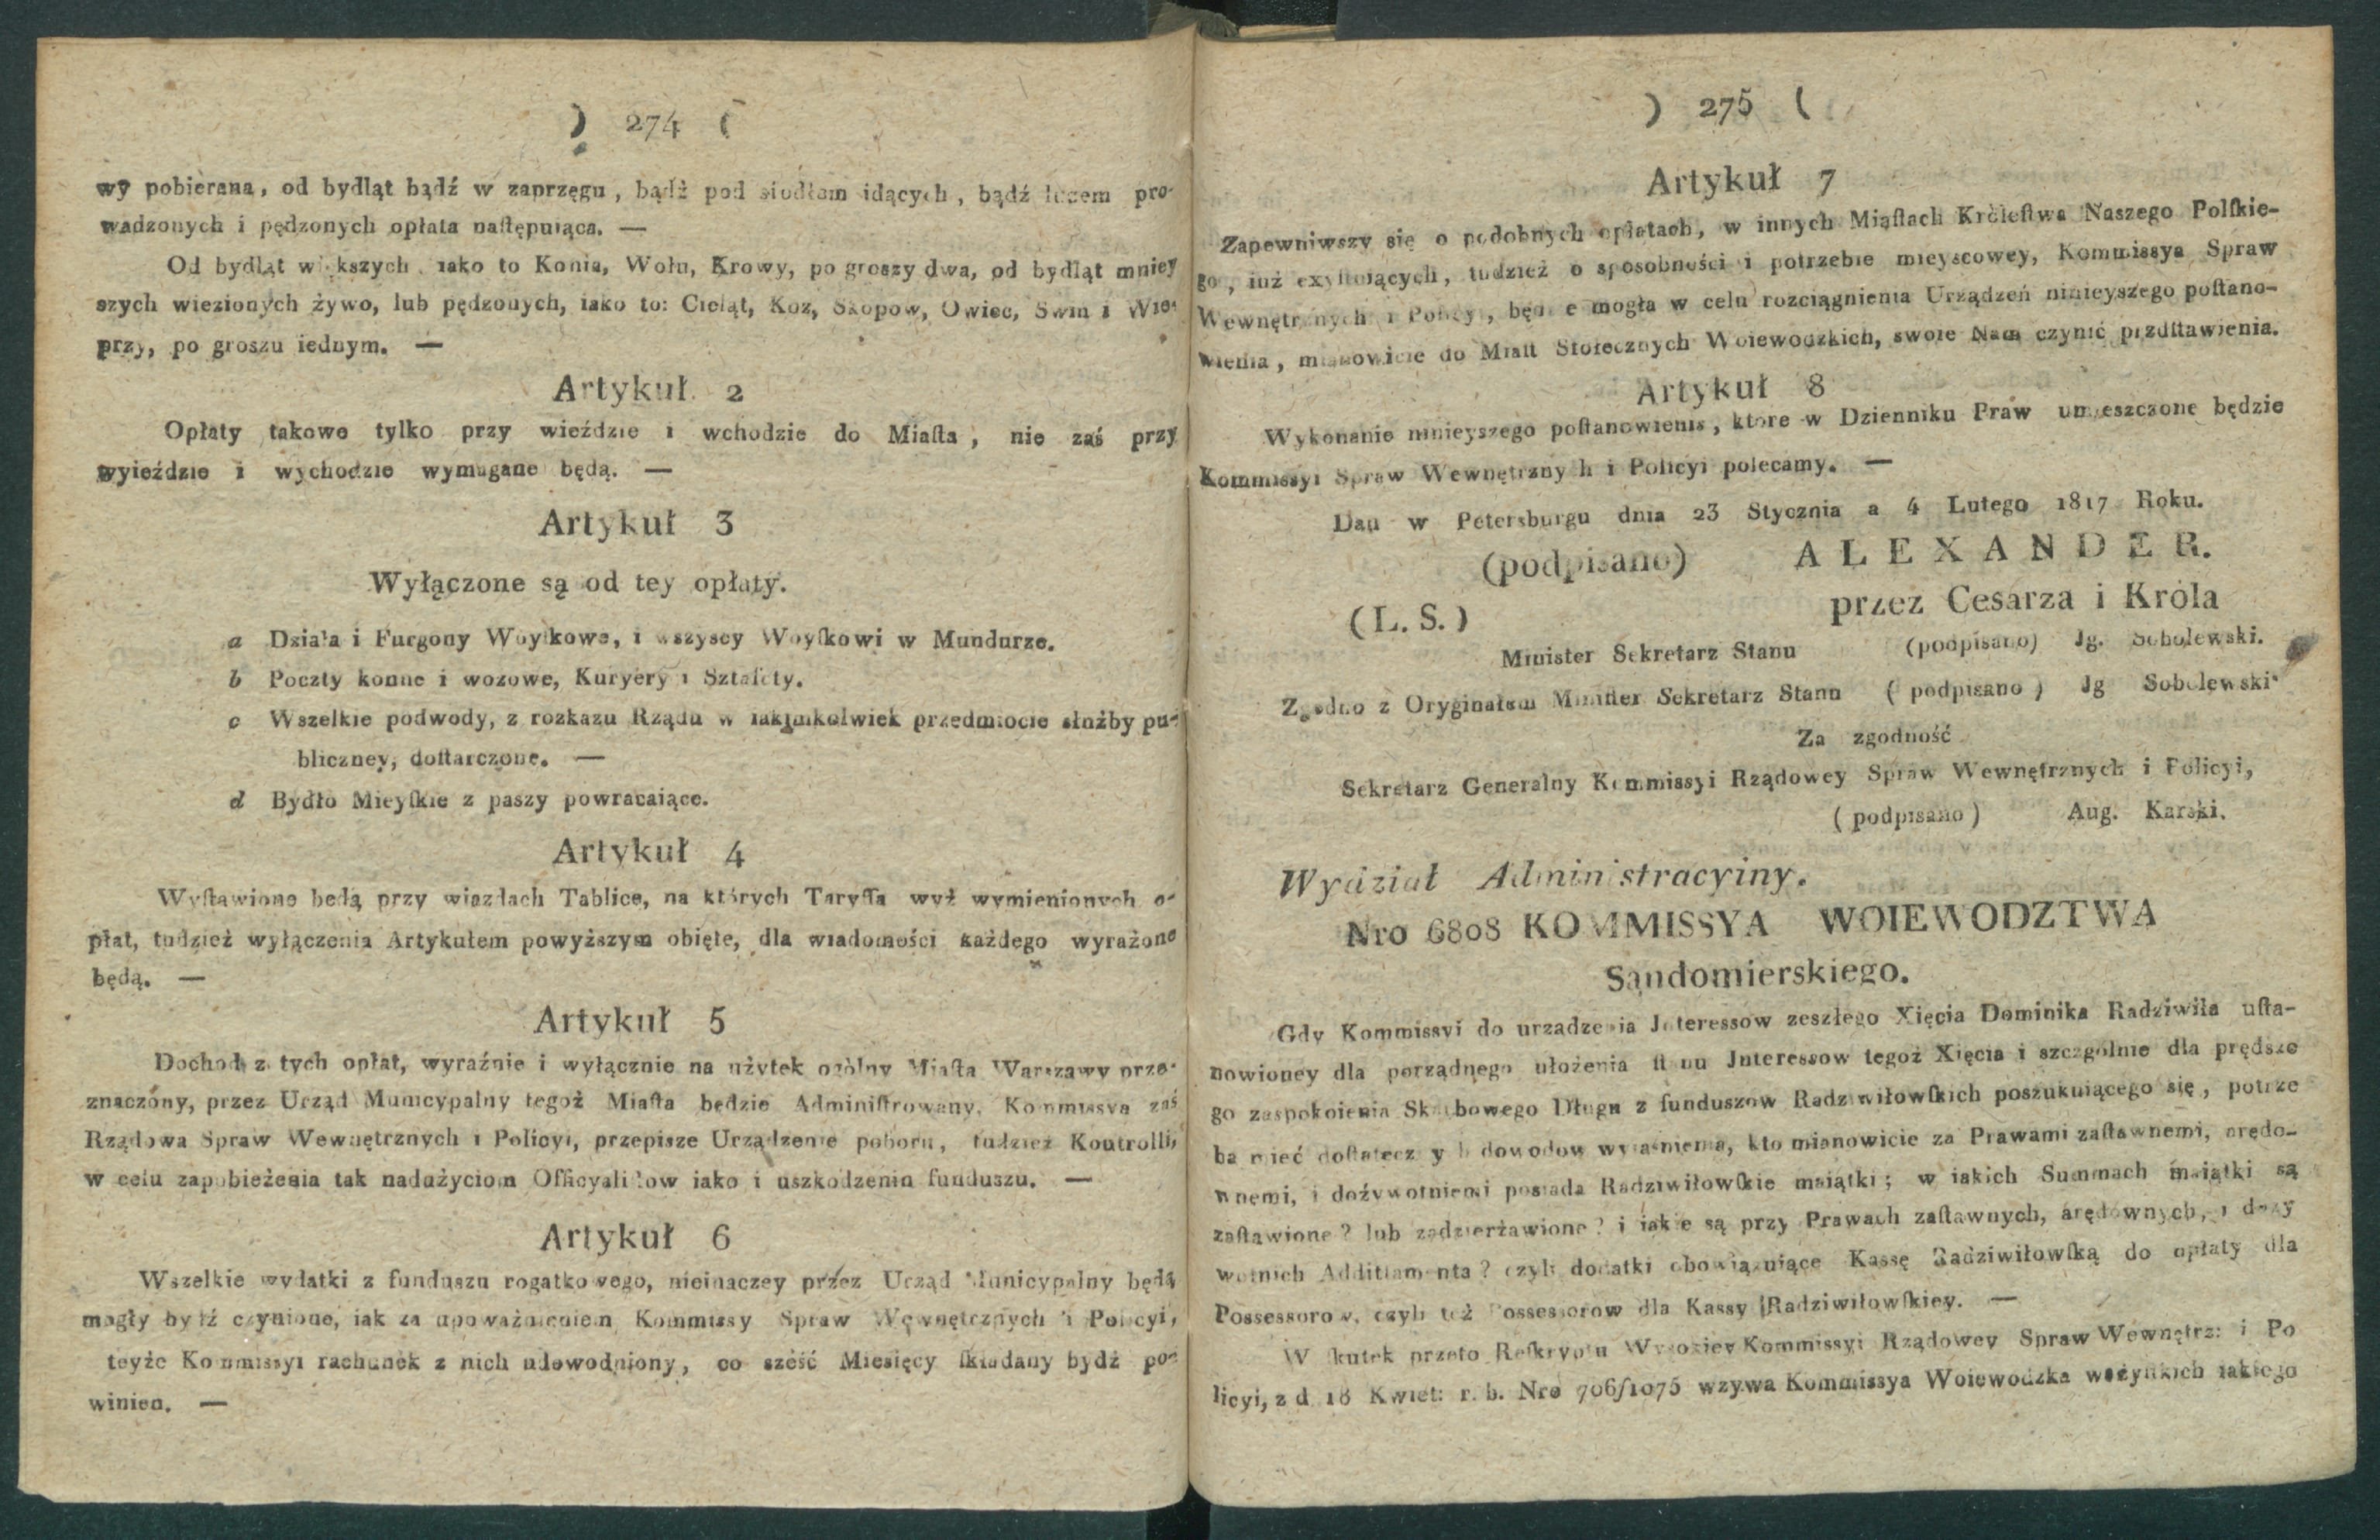 ) 274 (
wy pobierana, od bydląt bądź w zaprzęgu, bądź pod siodłem idących, bądź luzem pro-
wadzonych i pędzonych opłata naſtępuiąca. —
Od bydląt większych iako to Konia, Wołu, Krowy, po groszy dwa, od bydląt mniey
szych wiezionych żywo, lub pędzonych, iako to: Cieląt, Koz, Skopow, Owiec, Swin i Wie-
przy, po groszu iednym. —
Artykuł 2
Opłaty takowe tylko przy wieździe i wchodzie do Miaſta, nie zaś przy
wyieździe i wychodzie wymagane będą. —
Artykuł 3
Wyłączone są od tey opłaty.
a Działa i Furgony Woyſkowe, i wszyscy Woyſkowi w Mundurze.
b Poczty konne i wozowe, Kuryery i Sztafety.
c Wszelkie podwody, z rozkazu Rządu w iakimkolwiek przedmiocie służby pu-
bliczney, doſtarczone. —
d Bydło Mieyſkie z paszy powracaiące.
Artykuł 4
Wyſtawione będą przy wiazdach Tablice, na których Taryffa wyż wymienionych o-
płat, tudzież wyłączenia Artykułem powyższym obięte, dla wiadomości każdego wyrażone
będą. —
Artykuł 5
Dochod z tych opłat, wyraźnie i wyłącznie na użytek ogòlny Miaſta Warszawy prze-
znaczóny, przez Urząd Municypalny tegoż Miaſta będzie Adminiſtrowany. Kommissya zaś
Rządowa Spraw Wewnętrznych i Policyi, przepisze Urządzenie poboru, tudzież Kontrolli,
w celu zapobieżenia tak nadużyciom Officyaliſtow iako i uszkodzeniu funduszu. —
Artykuł 6
Wszelkie wydatki z funduszu rogatkowego, nieinaczey przez Urząd Municypalny będą
mogły bydź czynione, iak za upoważnieniem Kommissy Spraw Wewnętrznych i Policyi,
teyże Kommissyi rachunek z nich udowodniony, co sześć Miesięcy ſkładany bydź po-
winien. —
) 275 (
Artykuł 7
Zapewniwszy się o podobnych opłatach, w innych Miaſtach Kròleſtwa Naszego Polſkie-
go, iuż exyſtuiących, tudzież o sposobności i potrzebie mieyscowey, Kommissya Spraw
Wewnętrznych i Policyi, będzie mogła w celu rozciągnienia Urządzeń ninieyszego poſtano-
wienia, mianowicie do Miaſt Stołecznych Woiewodzkich, swoie Nam czynić przdſtawienia.
Artykuł 8
Wykonanie ninieyszego poſtanowienia, ktore w Dzienniku Praw umieszczone będzie
Kommissyi Spraw Wewnętrznych i Policyi polecamy. —
Dan w Petersburgu dnia 23 Stycznia a 4 Lutego 1817 Roku.
(podpisano) ALEXANDER.
przez Cesarza i Króla
(L. S.)
Minister Sekretarz Stanu (podpisano) Jg. Sobolewski.
Zgodno z Oryginałem Miniſter Sekretarz Stanu (podpisano) Jg Sobolewski
Za zgodność
Sekretarz Generalny Kommissyi Rządowey Spraw Wewnętrznych i Policyi,
(podpisano) Aug. Karski.
Wydział Administracyiny.
Nro 6808 KOMMISSYA WOIEWODZTWA
Sandomierskiego.
Gdy Kommissyi do urzadzenia Jnteressow zeszłego Xięcia Dominika Radziwiła uſta-
nowioney dla porządnego ułożenia ſtanu Jnteressow tegoż Xięcia i szczgólnie dla prędsze
go zaspokoienia Skarbowego Długu z funduszow Radziwiłowſkich poszukuiącego się, potrze
ba mieć doſtatecznych dowodow wyiaśnienia, kto mianowicie za Prawami zaſtawnemi, arędo-
wnemi, i dożywotniemi posiada Radziwiłowſkie maiątki; w iakich Summach maiątki są
zaſtawione? lub zadzierżawione? i iakie są przy Prawach zaſtawnych, arędownych, i doży
wotnich Additiamenta? czyli dodatki obowiązuiące Kassę Radziwiłowſką do opłaty dla
Possessorow, czyli też Possessorow dla Kassy Radziwiłowſkiey. —
W ſkutek przeto Reſkryptu Wysokiey Kommissyi Rządowey Spraw Wewnętrz: i Po
licyi, z d 18 Kwiet: r. b. Nro 706/1075 wzywa Kommissya Woiewodzka wszyſtkich iakiego